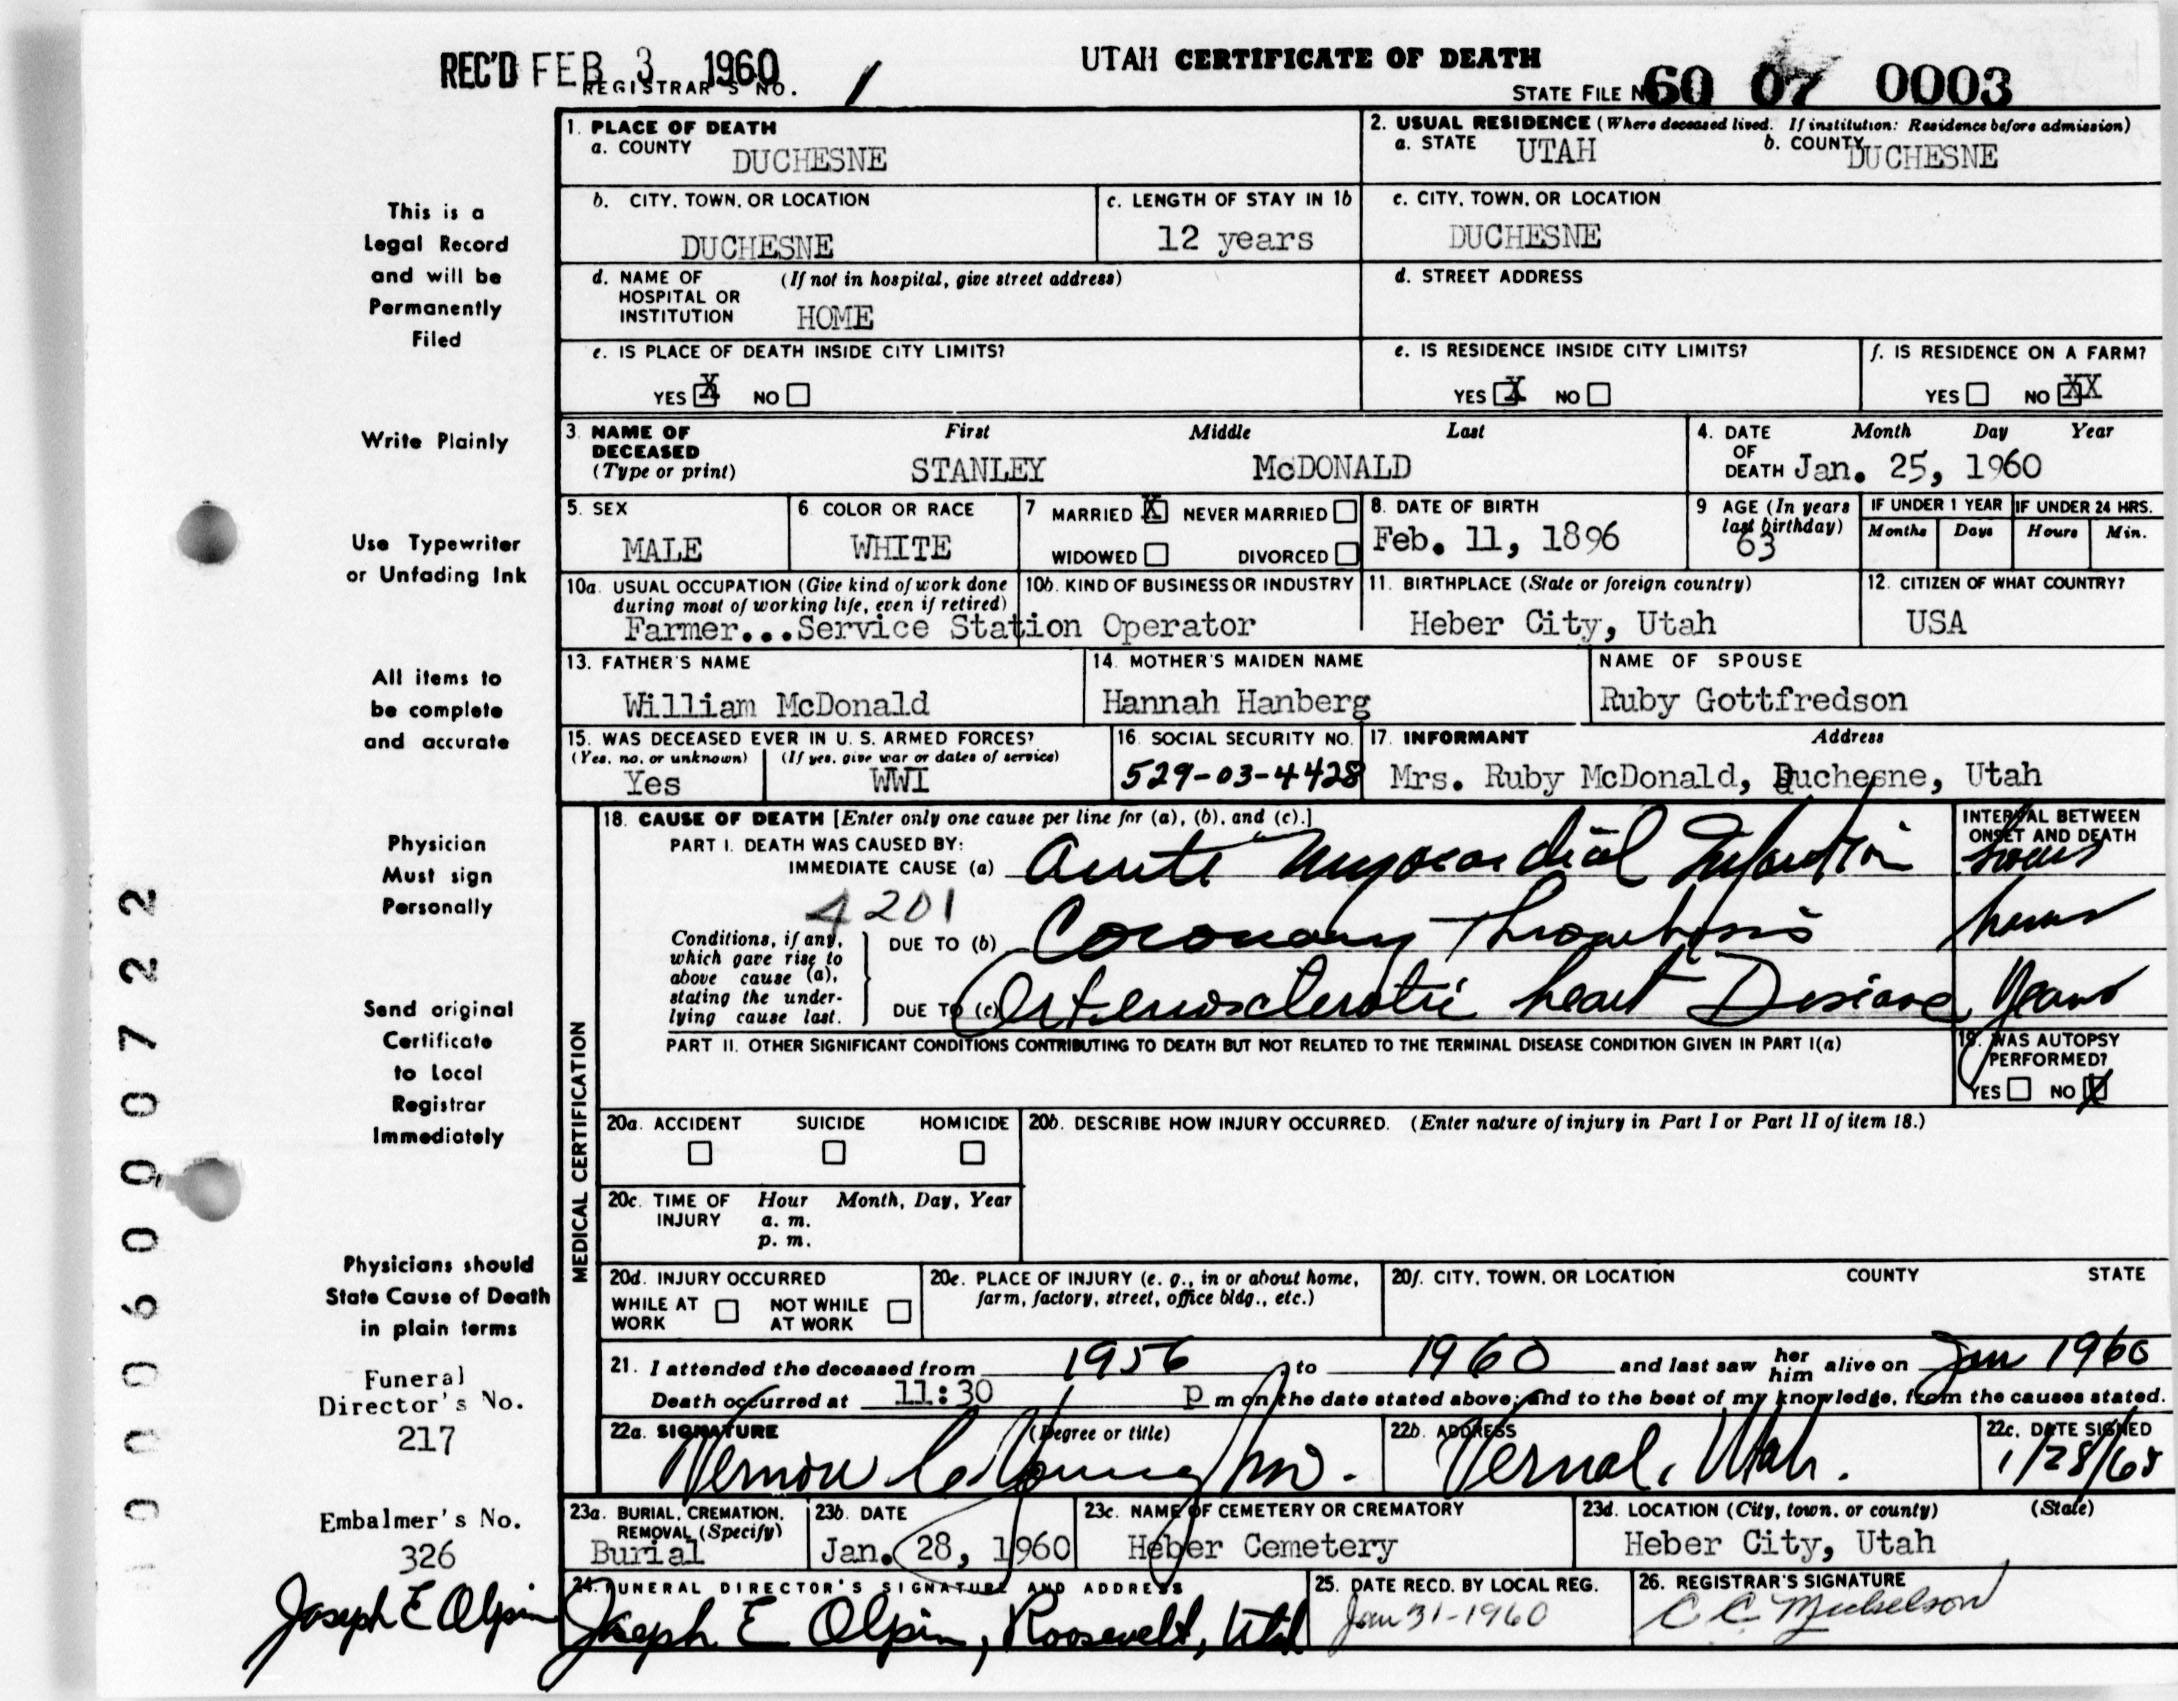 REC'D FEB 3 1960
REGISTRAR'S NO. 1
UTAH CERTIFICATE OF DEATH
STATE FILE No. 60 07 0003
1. PLACE OF DEATH
a. COUNTY DUCHESNE
2. USUAL RESIDENCE (Where deceased lived. If institution: Residence before admission)
a. STATE UTAH b. COUNTY DUCHESNE
b. CITY, TOWN, OR LOCATION DUCHESNE
c. LENGTH OF STAY IN 1b 12 years
c. CITY, TOWN, OR LOCATION DUCHESNE
d. NAME OF HOSPITAL OR INSTITUTION (If not in hospital, give street address) HOME
d. STREET ADDRESS
e. IS PLACE OF DEATH INSIDE CITY LIMITS?
YES X NO
e. IS RESIDENCE INSIDE CITY LIMITS?
YES X NO
f. IS RESIDENCE ON A FARM?
YES NO XX
3. NAME OF DECEASED (Type or print) First Middle Last
STANLEY McDONALD
4. DATE OF DEATH Month Day Year
Jan. 25, 1960
5. SEX MALE
6. COLOR OR RACE WHITE
7 MARRIED X NEVER MARRIED
WIDOWED DIVORCED
8. DATE OF BIRTH Feb. 11, 1896
9 AGE (In years last birthday) 63
IF UNDER 1 YEAR Months Days
IF UNDER 24 HRS. Hours Min.
10a. USUAL OCCUPATION (Give kind of work done during most of working life, even if retired)
10b. KIND OF BUSINESS OR INDUSTRY
Farmer...Service Station Operator
11. BIRTHPLACE (State or foreign country) Heber City, Utah
12. CITIZEN OF WHAT COUNTRY? USA
13. FATHER'S NAME William McDonald
14. MOTHER'S MAIDEN NAME Hannah Hanberg
NAME OF SPOUSE Ruby Gottfredson
15. WAS DECEASED EVER IN U. S. ARMED FORCES?
(Yes, no, or unknown) Yes
(If yes, give war or dates of service) WWI
16. SOCIAL SECURITY NO. 529-03-4428
17. INFORMANT Address
Mrs. Ruby McDonald, Duchesne, Utah
MEDICAL CERTIFICATION
18. CAUSE OF DEATH [Enter only one cause per line for (a), (b), and (c).]
PART I. DEATH WAS CAUSED BY:
IMMEDIATE CAUSE (a) Acute Myocardial Infarction
INTERVAL BETWEEN ONSET AND DEATH
hours
4201
Conditions, if any, which gave rise to above cause (a), stating the underlying cause last.
DUE TO (b) Coronary Thrombosis hours
DUE TO (c) Arteriosclerotic heart Disease years
PART II. OTHER SIGNIFICANT CONDITIONS CONTRIBUTING TO DEATH BUT NOT RELATED TO THE TERMINAL DISEASE CONDITION GIVEN IN PART I(a)
19. WAS AUTOPSY PERFORMED?
YES NO X
20a. ACCIDENT SUICIDE HOMICIDE
20b. DESCRIBE HOW INJURY OCCURRED. (Enter nature of injury in Part I or Part II of item 18.)
20c. TIME OF INJURY Hour Month, Day, Year
a. m.
p. m.
20d. INJURY OCCURRED
WHILE AT WORK NOT WHILE AT WORK
20e. PLACE OF INJURY (e. g., in or about home, farm, factory, street, office bldg., etc.)
20f. CITY, TOWN, OR LOCATION COUNTY STATE
21. I attended the deceased from 1956 to 1960 and last saw her him alive on Jan 1960
Death occurred at 11:30 p m on the date stated above; and to the best of my knowledge, from the causes stated.
22a. SIGNATURE (Degree or title)
Vernon C. Young MD.
22b. ADDRESS Vernal, Utah.
22c. DATE SIGNED 1/28/60
23a. BURIAL, CREMATION, REMOVAL (Specify) Burial
23b. DATE Jan. 28, 1960
23c. NAME OF CEMETERY OR CREMATORY Heber Cemetery
23d. LOCATION (City, town, or county) (State) Heber City, Utah
24. FUNERAL DIRECTOR'S SIGNATURE AND ADDRESS
Joseph E Olpin, Roosevelt, Utah
25. DATE RECD. BY LOCAL REG. Jan 31-1960
26. REGISTRAR'S SIGNATURE
C C Mickelson
This is a
Legal Record
and will be
Permanently
Filed
Write Plainly
Use Typewriter
or Unfading Ink
All items to
be complete
and accurate
Physician
Must sign
Personally
Send original
Certificate
to Local
Registrar
Immediately
Physicians should
State Cause of Death
in plain terms
Funeral
Director's No.
217
Embalmer's No.
326
Joseph E Olpin